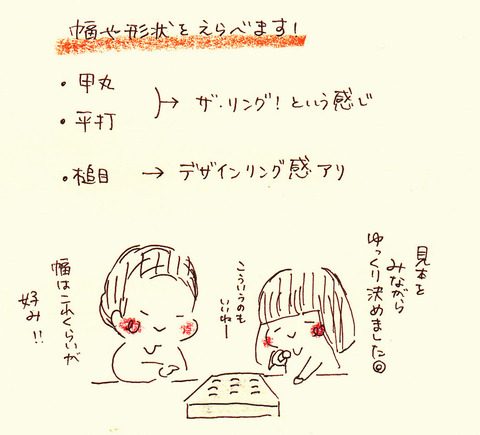 幅や形状をえらべます!
・甲丸
・平打
→ ザ・リング!という感じ
・槌目 → デザインリング感アリ
見本を
みながら
ゆっくり決めました◎
こういうのも
いいねー
幅はこれくらいが
好み!!